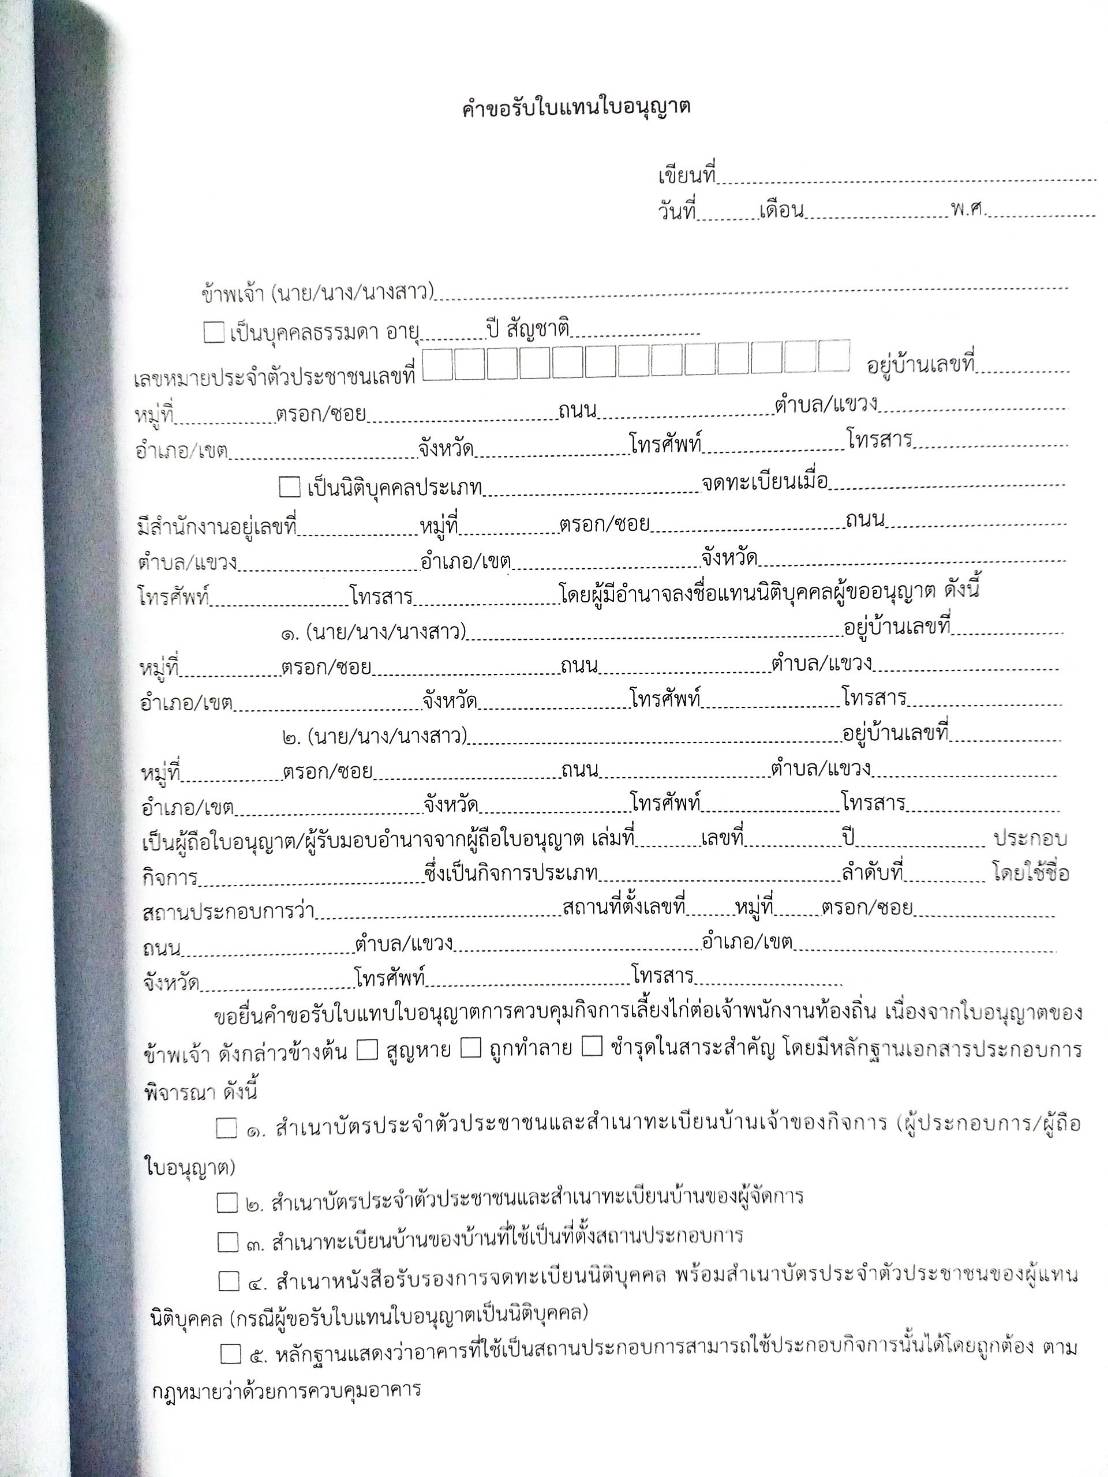 คำขอรับใบแทนใบอนุญาต
เขียนที่
วันที่ เดือน พ.ศ.
ข้าพเจ้า (นาย/นาง/นางสาว)
เป็นบุคคลธรรมดา อายุ ปี สัญชาติ
เลขหมายประจำตัวประชาชนเลขที่ อยู่บ้านเลขที่
หมู่ที่ ตรอก/ซอย ถนน ตำบล/แขวง
อำเภอ/เขต จังหวัด โทรศัพท์ โทรสาร
เป็นนิติบุคคลประเภท จดทะเบียนเมื่อ
มีสำนักงานอยู่เลขที่ หมู่ที่ ตรอก/ซอย ถนน
ตำบล/แขวง อำเภอ/เขต จังหวัด
โทรศัพท์ โทรสาร โดยผู้มีอำนาจลงชื่อแทนนิติบุคคลผู้ขออนุญาต ดังนี้
๑. (นาย/นาง/นางสาว) อยู่บ้านเลขที่
หมู่ที่ ตรอก/ซอย ถนน ตำบล/แขวง
อำเภอ/เขต จังหวัด โทรศัพท์ โทรสาร
๒. (นาย/นาง/นางสาว) อยู่บ้านเลขที่
หมู่ที่ ตรอก/ซอย ถนน ตำบล/แขวง
อำเภอ/เขต จังหวัด โทรศัพท์ โทรสาร
เป็นผู้ถือใบอนุญาต/ผู้รับมอบอำนาจจากผู้ถือใบอนุญาต เล่มที่ เลขที่ ปี ประกอบ
กิจการ ซึ่งเป็นกิจการประเภท ลำดับที่ โดยใช้ชื่อ
สถานประกอบการว่า สถานที่ตั้งเลขที่ หมู่ที่ ตรอก/ซอย
ถนน ตำบล/แขวง อำเภอ/เขต
จังหวัด โทรศัพท์ โทรสาร
ขอยื่นคำขอรับใบแทบใบอนุญาตการควบคุมกิจการเลี้ยงไก่ต่อเจ้าพนักงานท้องถิ่น เนื่องจากใบอนุญาตของ
ข้าพเจ้า ดังกล่าวข้างต้น สูญหาย ถูกทำลาย ชำรุดในสาระสำคัญ โดยมีหลักฐานเอกสารประกอบการ
พิจารณา ดังนี้
๑. สำเนาบัตรประจำตัวประชาชนและสำเนาทะเบียนบ้านเจ้าของกิจการ (ผู้ประกอบการ/ผู้ถือ
ใบอนุญาต)
๒. สำเนาบัตรประจำตัวประชาชนและสำเนาทะเบียนบ้านของผู้จัดการ
๓. สำเนาทะเบียนบ้านของบ้านที่ใช้เป็นที่ตั้งสถานประกอบการ
๔. สำเนาหนังสือรับรองการจดทะเบียนนิติบุคคล พร้อมสำเนาบัตรประจำตัวประชาชนของผู้แทน
นิติบุคคล (กรณีผู้ขอรับใบแทนใบอนุญาตเป็นนิติบุคคล)
๕. หลักฐานแสดงว่าอาคารที่ใช้เป็นสถานประกอบการสามารถใช้ประกอบกิจการนั้นได้โดยถูกต้อง ตาม
กฎหมายว่าด้วยการควบคุมอาคาร